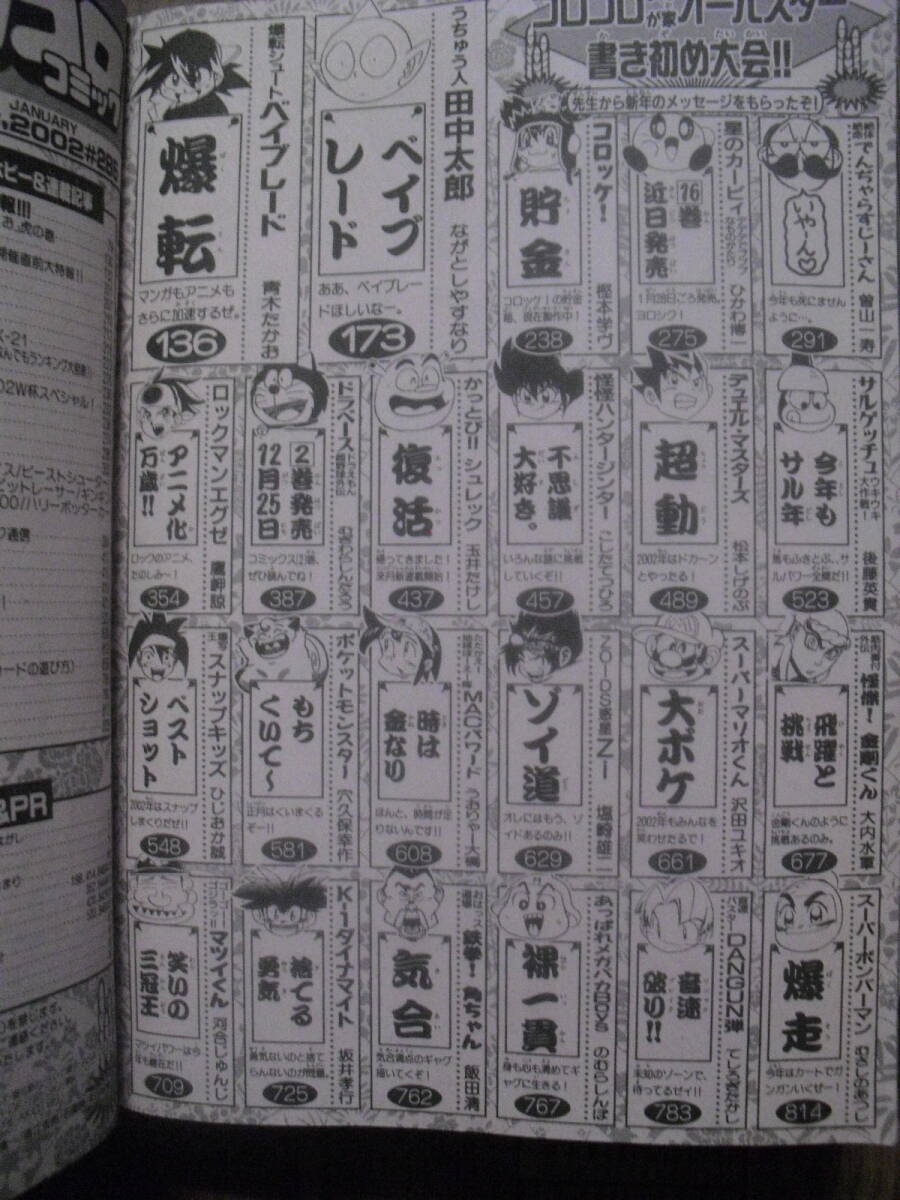 コロコロまんが家オールスター
書き初め大会!!
先生から新年のメッセージをもらったぞ!
でんぢゃらすじーさん
曽山一寿
いやん♡
今年も死にません
ように…。
291
星のカービィ
ひかわ博一
16巻
近日発売
1月28日ごろ発売。
ヨロシク!
275
コロッケ!
樫本学ヴ
貯金
コロッケ!の貯金
箱、現在製作中!
238
うちゅう人田中太郎
ながとしやすなり
ベイブ
レード
ああ、ベイブレー
ドほしいなー。
173
爆転シュートベイブレード
青木たかお
爆転
マンガもアニメも
さらに加速するぜ。
136
サルゲッチュ
ウキウキ大作戦!
後藤英貴
今年も
サル年
馬もふきとぶ、サ
ルパワー全開だ!!
523
デュエル・マスターズ
松本しげのぶ
超動
2002年はドカーン
とやったる!
489
怪怪ハンタージンタ
こしたてつひろ
不思議
大好き。
いろんな謎に挑戦
していくぞ!!
457
かっとび!!シュレック
玉井たけし
復活
帰ってきました!
来月新連載開始!
437
ドラベース
むぎわらしんたろう
2巻発売
12月25日
コミックス2巻、
ぜひ読んでね!
387
ロックマンエグゼ
鷹岬諒
アニメ化
万歳!!
ロックのアニメ、
たのしみ〜!
354
怪傑!金剛くん
大内水軍
飛躍と
挑戦
金剛くんのように
挑戦あるのみ。
677
スーパーマリオくん
沢田ユキオ
大ボケ
2002年もみんなを
笑わせたるで!
661
ZOIDS惑星Zi
塩幹雄二
ゾイ道
オレにはもう、ゾ
イドあるのみ!!
629
MACパワード
うおりゃー大橋
時は
金なり
ほんと、時間が足
りないんです!!
608
ポケットモンスター
穴久保幸作
もち
くいて〜
正月はくいまくる
ぞー!!
581
爆写王スナップキッズ
ひじおか誠
ベスト
ショット
2002年はスナップ
しまくりだぜ!!
548
スーパーボンバーマン
むさしのあつし
爆走
今年はカートでガ
ンガンいくぜー!
814
DANGUN弾
てしろぎたかし
音速
破り!!
未知のゾーンで、
待ってるゼイ!!
783
あっぱれメガバカBOYS
のむらしんぼ
裸一貫
身も心も清めてギ
ャグに生きる!
767
鉄拳!角ちゃん
飯田清
気合
気合満点のギャグ
描いてくぞ!
762
K-1ダイナマイト
坂井孝行
捨てる
勇気
勇気ないのと捨て
らんないのが問題。
725
ゴーゴー!ゴジラッ!!マツイくん
河合じゅんじ
笑いの
三冠王
マツイパワーは今
年も健在だ!!
709
コロ
コミック
JANUARY
2002#285
虎の巻
直前大特報!!
なんでもランキング
02W杯スペシャル!
ビーストシューター
ハリーポッター
通信
カードの遊び方)
&PR